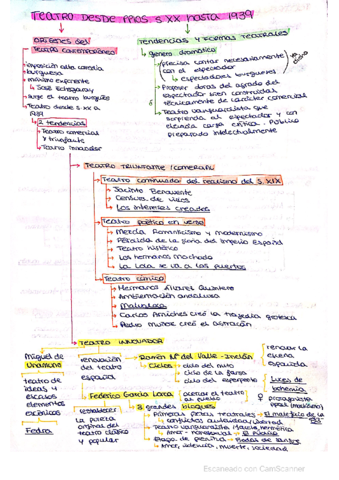 TEATRO DESDE PPOS S.XX HASTA 1939
ORÍGENES DEL
TEATRO CONTEMPORÁNEO
oposición alta comedia
burguesa
máximo exponente
José Echegaray
surge el teatro burgués
Teatro desde s.XX a
1939
2 tendencias
Teatro comercial
y triunfante
Teatro innovador
TENDENCIAS Y FORMAS TEATRALES
género dramático
precisa contar necesariamente
con el espectador
espectadores burgueses
Proponer obras del agrado del
espectador bien construidas
técnicamente de carácter comercial
Teatro vanguardista que
sorprenda al espectador y con
elevada carga crítica. Público
preparado intelectualmente
TEATRO TRIUNFANTE (COMERCIAL)
Teatro continuador del realismo del S.XIX
Jacinto Benavente
Los intereses creados
Teatro poético en verso
Mezcla Romanticismo y modernismo
Pérdida de la fama del Imperio Español
Teatro histórico
Los hermanos Machado
La Lola se va a los puertos
Teatro cómico
Hermanos Álvarez Quintero
Ambientación andaluza
Malvaloca
Carlos Arniches creó la tragedia grotesca
Pedro Muñoz creó el astracán
TEATRO INNOVADOR
Miguel de
Unamuno
teatro de
ideas y
escasos
elementos
escénicos
Fedra
renovación
del teatro
español
Ramón Mª del Valle-Inclán
Ciclos
ciclo del mito
ciclo de la farsa
ciclo del esperpento
renovar la
escena
española
Luces de
bohemia
protagonista
Federico García Lorca
acercar el teatro
al pueblo
restablecer
la pureza
original del
teatro clásico
y popular
3 grandes bloques
Primeras piezas teatrales
El maleficio de la
Teatro vanguardista
Amor
El Público
Bodas de sangre
Amor, violencia, muerte,
Escaneado con CamScanner